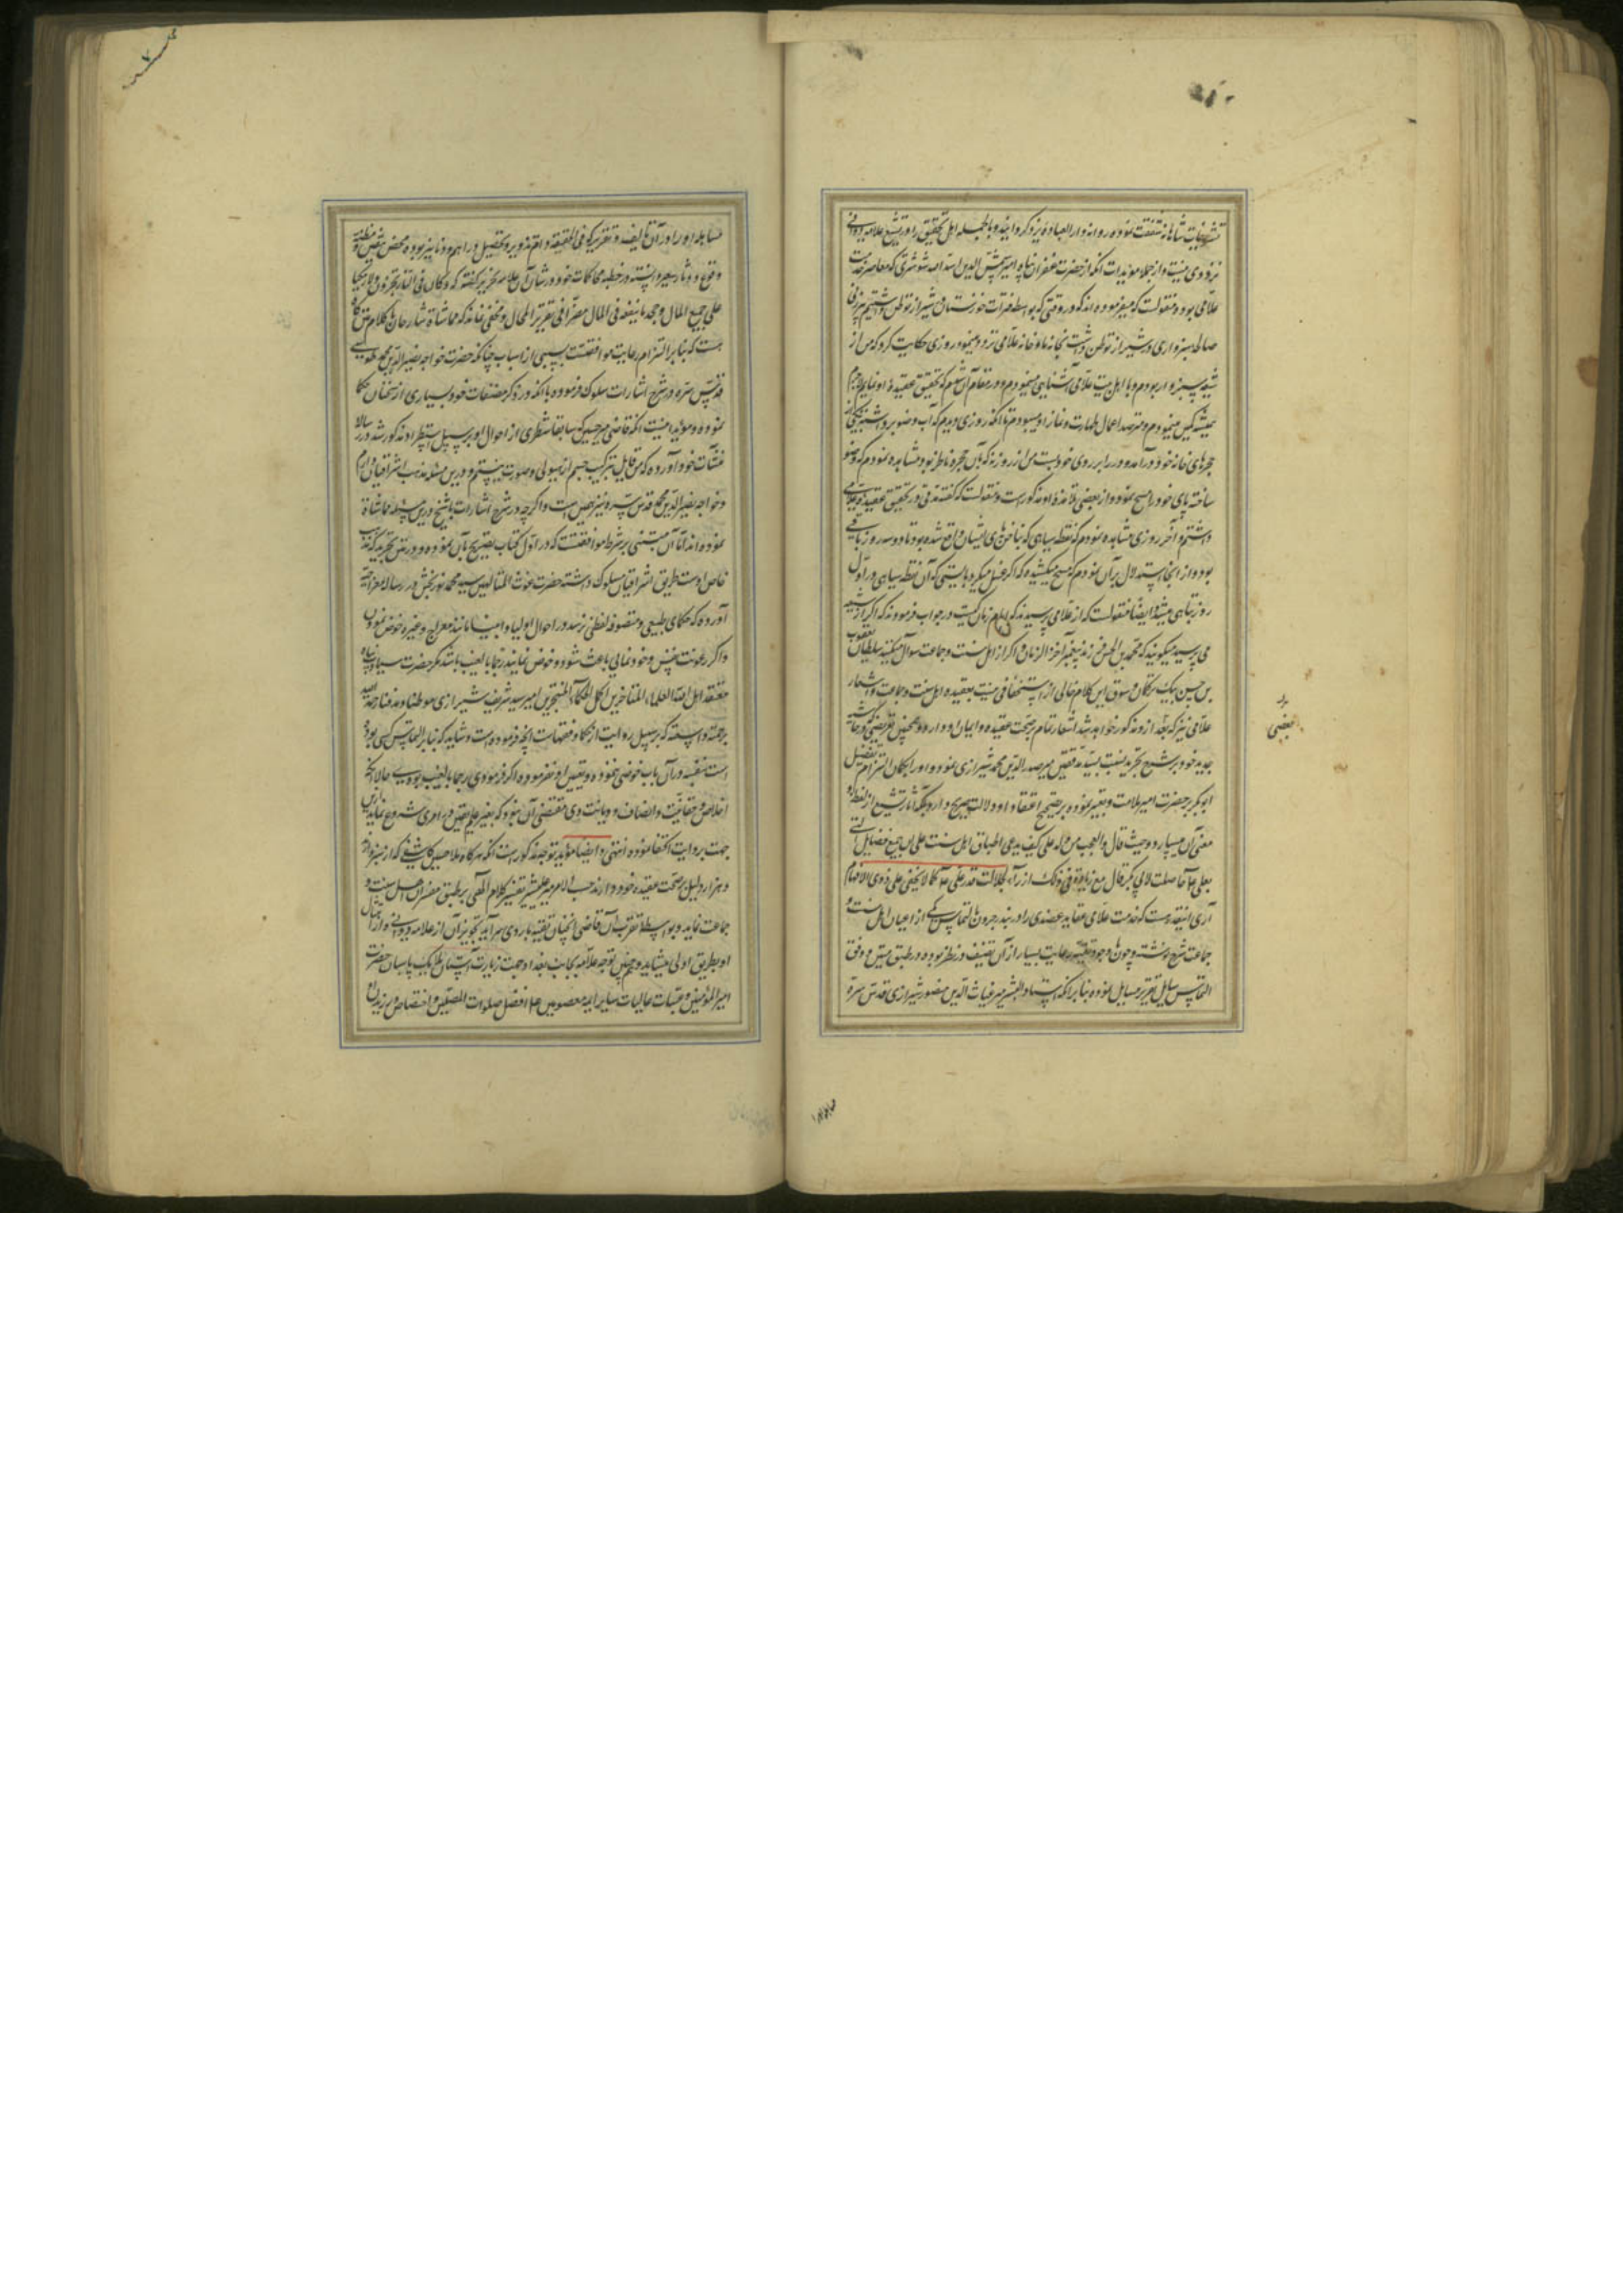 تشریفات شاهانه شفقت نموده روانه دار العباده یزد گردانید و بالجمله اهل تحقیق را در تشیع علامه دوانی
تردی نیست و از جمله مؤیدات آنکه از حضرت غفران پناه امیر شمس الدین اسد الله شوشتری که معاصر خدمت
علامی بود منقولست که میفرموده‌اند که در وقتی که بواسطه فترات خوزستان در شیراز توطن داشتیم
صالحه سبزواری در شیراز توطن داشت بخانه ما و خانه علامی تردد مینمود روزی حکایت کرد که من از
شید سبزوار بودم و با اهل بیت علامی آشنایی مینمودم و در مقام آن شدم که تحقیق عقیده او نمایم
همیشه کمین مینمودم و مترصد اعمال طهارت و نماز او میبودم تا آنکه روزی دیدم که آب وضو برداشته
حجرهای خانه خود در آمد و در را بر روی خود بست من از روزنه که بآن حجره ناظر بود مشاهده نمودم که وضو
ساخته پای خود را مسح نمود و از بعضی تلامذه او مذکور است و منقولست که گفته مدتی در تحقیق عقیده علامی
داشتم و آخر روزی مشاهده نمودم که نقطه سیاهی که بناخن‌های ایشان واقع شده بود تا دو سه روز باقی
بود و از اینجا استدلال بر آن نمودم که مسح میکشیده که اگر غسل میکرد بایستی که آن نقطه سیاهی در اول
روز تباهی میشد و ایضا منقولست که از علامی پرسیدند که امام زمان کیست در جواب فرمودند که اگر از شیعه
می پرسید میگویند که محمد بن الحسن فرزند پیغمبر آخر الزمان و اگر از اهل سنت و جماعت سوال میکنید سلطان یعقوب
بن حسن بیک ترکمان و سوق این کلام خالی از استخفافی نیست بعقیده اهل سنت و جماعت و اشعار
علامی نیز که بعد از این مذکور خواهد شد اشعار تمام بر صحت عقیده و ایمان او دارد و همچنین تعریضی که در حاشیه
جدید خود بر شرح تجرید نسبت بسید مدققین میر صدر الدین محمد شیرازی نموده و او را بگمان التزام تفضیل
ابو بکر بر حضرت امیر ملامت و تعییر نموده بر تصحیح اعتقاد او دلالت صریح دارد چنانکه آثار تشیع از لفظ و
معنی آن میبارد حیث قال و العجب من ولد علی کیف یدعی اطباق اهل سنت علی ان جمیع فضایل التی
بعلی ع حاصلت لابی بکر قال مع زیادة و فی ذلک ازراء بجلالت قدر علی ع کما لا یخفی علی ذوی الافهام
آری اینقدر هست که خدمت علامی عقاید عضدی را در بندر جرون بالتماس یکی از اعیان اهل سنت و
جماعت شرح نوشته و چون وجوه تقیه رعایت بسیار از آن تصنیف در نظر بوده و در طبق متن و وفق
التماس سایل تقریر مسایل نموده بنا بر آنکه استاد البشر میر غیاث الدین منصور شیرازی قدس سره
بعضی
مسایله او را در آن تالیف و تقریر که فی الحقیقه دام تزویر و تحصیل دراهم و دنانیر بوده محض نقص و مظنه
وقوع در نار سعیر دانسته در خطبه محاکمات خود در شان آن علامه نحریر گفته که و کان فی التاریخ
علی جمع المال و مجدا ینفعه فی المال مصرا فی تقریر المحال و مخفی نماند که مماشاة شارحان با کلام متن گاه
هست که بنا بر التزام رعایت موافقتست بسببی از اسباب چنانکه حضرت خواجه نصیر الدین محمد طوسی
قدس سره در شرح اشارات سلوک فرموده با آنکه در ذکر مصنفات خود بسیاری از سخنان حکما
نموده و مؤید اینست آنکه قاضی میر حسین که سابقا شطری از احوال او بر سبیل استطراد مذکور شد در رساله
منشآت خود آورده که من قایل بترکیب جسم از هیولی و صورت نیستم و درین مسئله مذهب اشراقیان دارم
و خواجه نصیر الدین محمد قدس سره نیز همین است و اگرچه در شرح اشارات با شیخ درین مسئله مماشاة
نموده‌اند اما آن مبتنی بر شرط موافقتست که در اول کتاب تصریح بآن نموده و در متن تجرید که مذهب
خاص اوست طریق اشراقیان مسلوک داشته حضرت غوث المتالهین سید محمد نوربخش در رساله معراجیه
آورده که حکمای طبیعی و متصوفه لفظی نرسد در احوال اولیا و انبیا مانند معراج و غیره خوض نمودن
و اگر رعونت نفس و خودنمایی باعث شود و خوض نمایند رجما بالغیب باشد مگر حضرت سیادت پناه
معتقد اهل الله العلماء المتاخرین اکمل الحکماء المتبحرین امیر سید شریف شیرازی موطنا و مدفنا رحمة الله
برحمته واسعه که بر سبیل روایت از حکما و فقهات آنچه فرموده است و شاید که بنا بر التماس کسی بوده
است بنفسه در آن باب خوضی ننموده و تعیین او نفرموده اگر فرمودی رجما بالغیب بودی حالا آنکه
اخلاص و حقانیت و انصاف و دیانت وی مقتضی آن نبود که بغیر علم یقین در امری شروع نماید ازین
جهت بروایت اکتفا نموده انتهی و ایضا مؤید توجیه مذکور است آنکه هرگاه ملا حسین کاشفی که از سبزوار
و هزار دلیل بر صحت عقیده خود دارند حسب الامر میر علیشیر تفسیر کلام الهی بر طبق مفسران اهل سنت و
جماعت نماید و بواسطه تقرب آن قاضی آنچنان تقیه بارد ازی سر آید تجویز آن از علامه دوانی و امثال
او بطریق اولی میشاید و همچنین توجه علامه بجانب بغداد جهت زیارت آستان ملایک پاسبان حضرت
امیر المؤمنین و عتبات عالیات سایر ایمه معصومین علیهم افضل صلوات المصلین و اختصاص